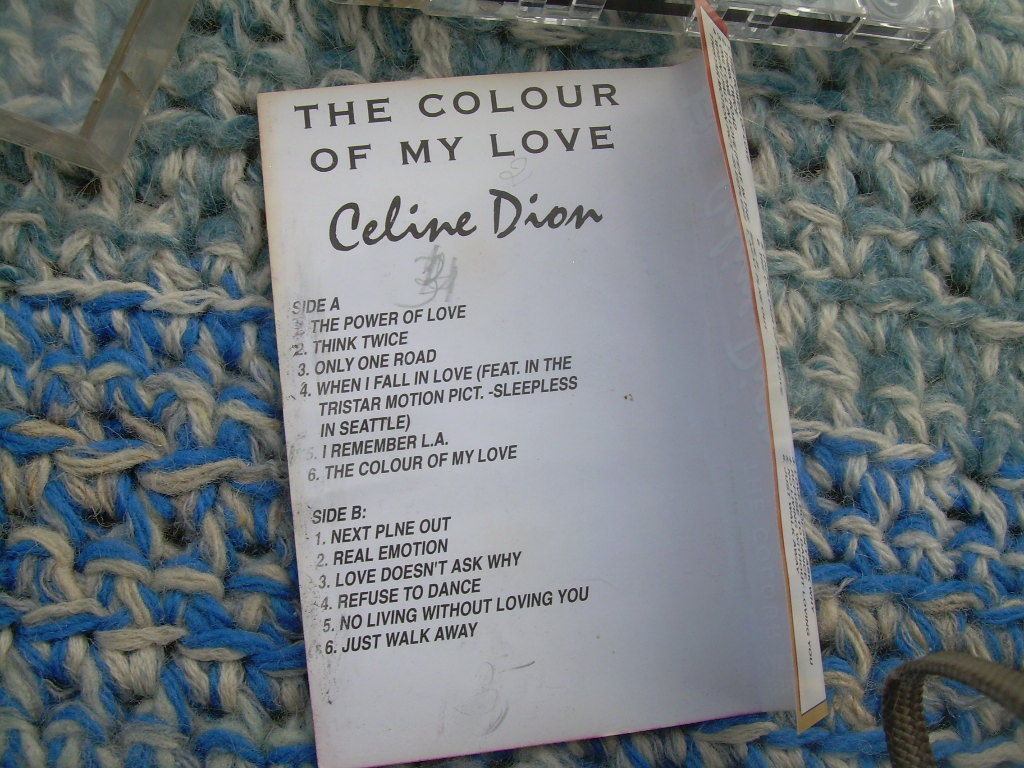 THE COLOUR
OF MY LOVE
Celine Dion
SIDE A
1. THE POWER OF LOVE
2. THINK TWICE
3. ONLY ONE ROAD
4. WHEN I FALL IN LOVE (FEAT. IN THE
TRISTAR MOTION PICT. -SLEEPLESS
IN SEATTLE)
5. I REMEMBER L.A.
6. THE COLOUR OF MY LOVE
SIDE B:
1. NEXT PLNE OUT
2. REAL EMOTION
3. LOVE DOESN'T ASK WHY
4. REFUSE TO DANCE
5. NO LIVING WITHOUT LOVING YOU
6. JUST WALK AWAY